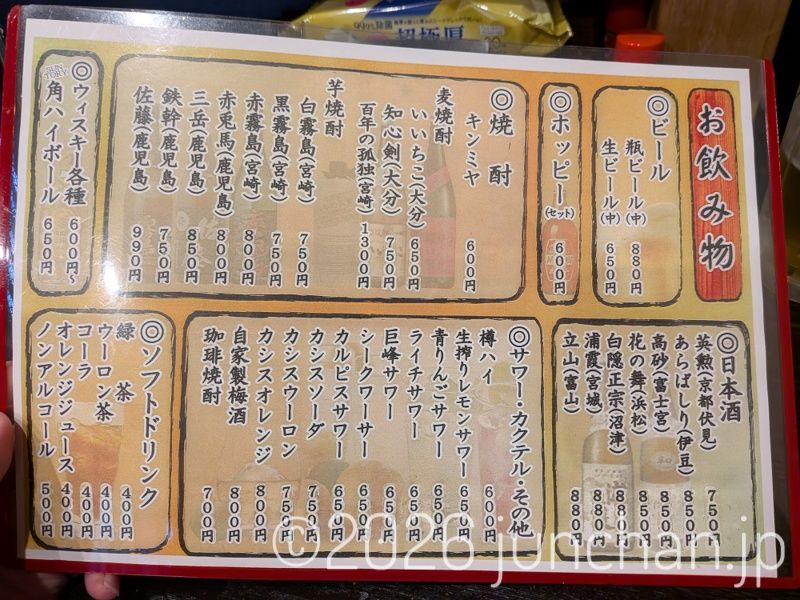 お飲み物
◎ビール
瓶ビール(中) 880円
生ビール(中) 650円
◎ホッピー(セット) 600円
◎焼酎
キンミヤ 600円
麦焼酎
いいちこ(大分) 650円
知心剣(大分) 750円
百年の孤独(宮崎) 1300円
芋焼酎
白霧島(宮崎) 750円
黒霧島(宮崎) 750円
赤霧島(宮崎) 800円
赤兎馬(鹿児島) 800円
三岳(鹿児島) 850円
鉄幹(鹿児島) 750円
佐藤(鹿児島) 990円
◎ウィスキー各種 600円~
角ハイボール 650円
◎日本酒
英勲(京都伏見) 750円
あらばしり(伊豆) 850円
高砂(富士宮) 850円
花の舞(浜松) 850円
白隠正宗(沼津) 880円
浦霞(宮城) 880円
立山(富山) 880円
◎サワー・カクテル・その他
樽ハイ 600円
生搾りレモンサワー 650円
青りんごサワー 650円
ライチサワー 650円
巨峰サワー 650円
シークワーサー 650円
カルピスサワー 650円
カシスソーダ 750円
カシスウーロン 750円
カシスオレンジ 800円
自家製梅酒 800円
珈琲焼酎 700円
◎ソフトドリンク
緑茶 400円
ウーロン茶 400円
コーラ 400円
オレンジジュース 400円
ノンアルコール 500円
©2026 junchan.jp